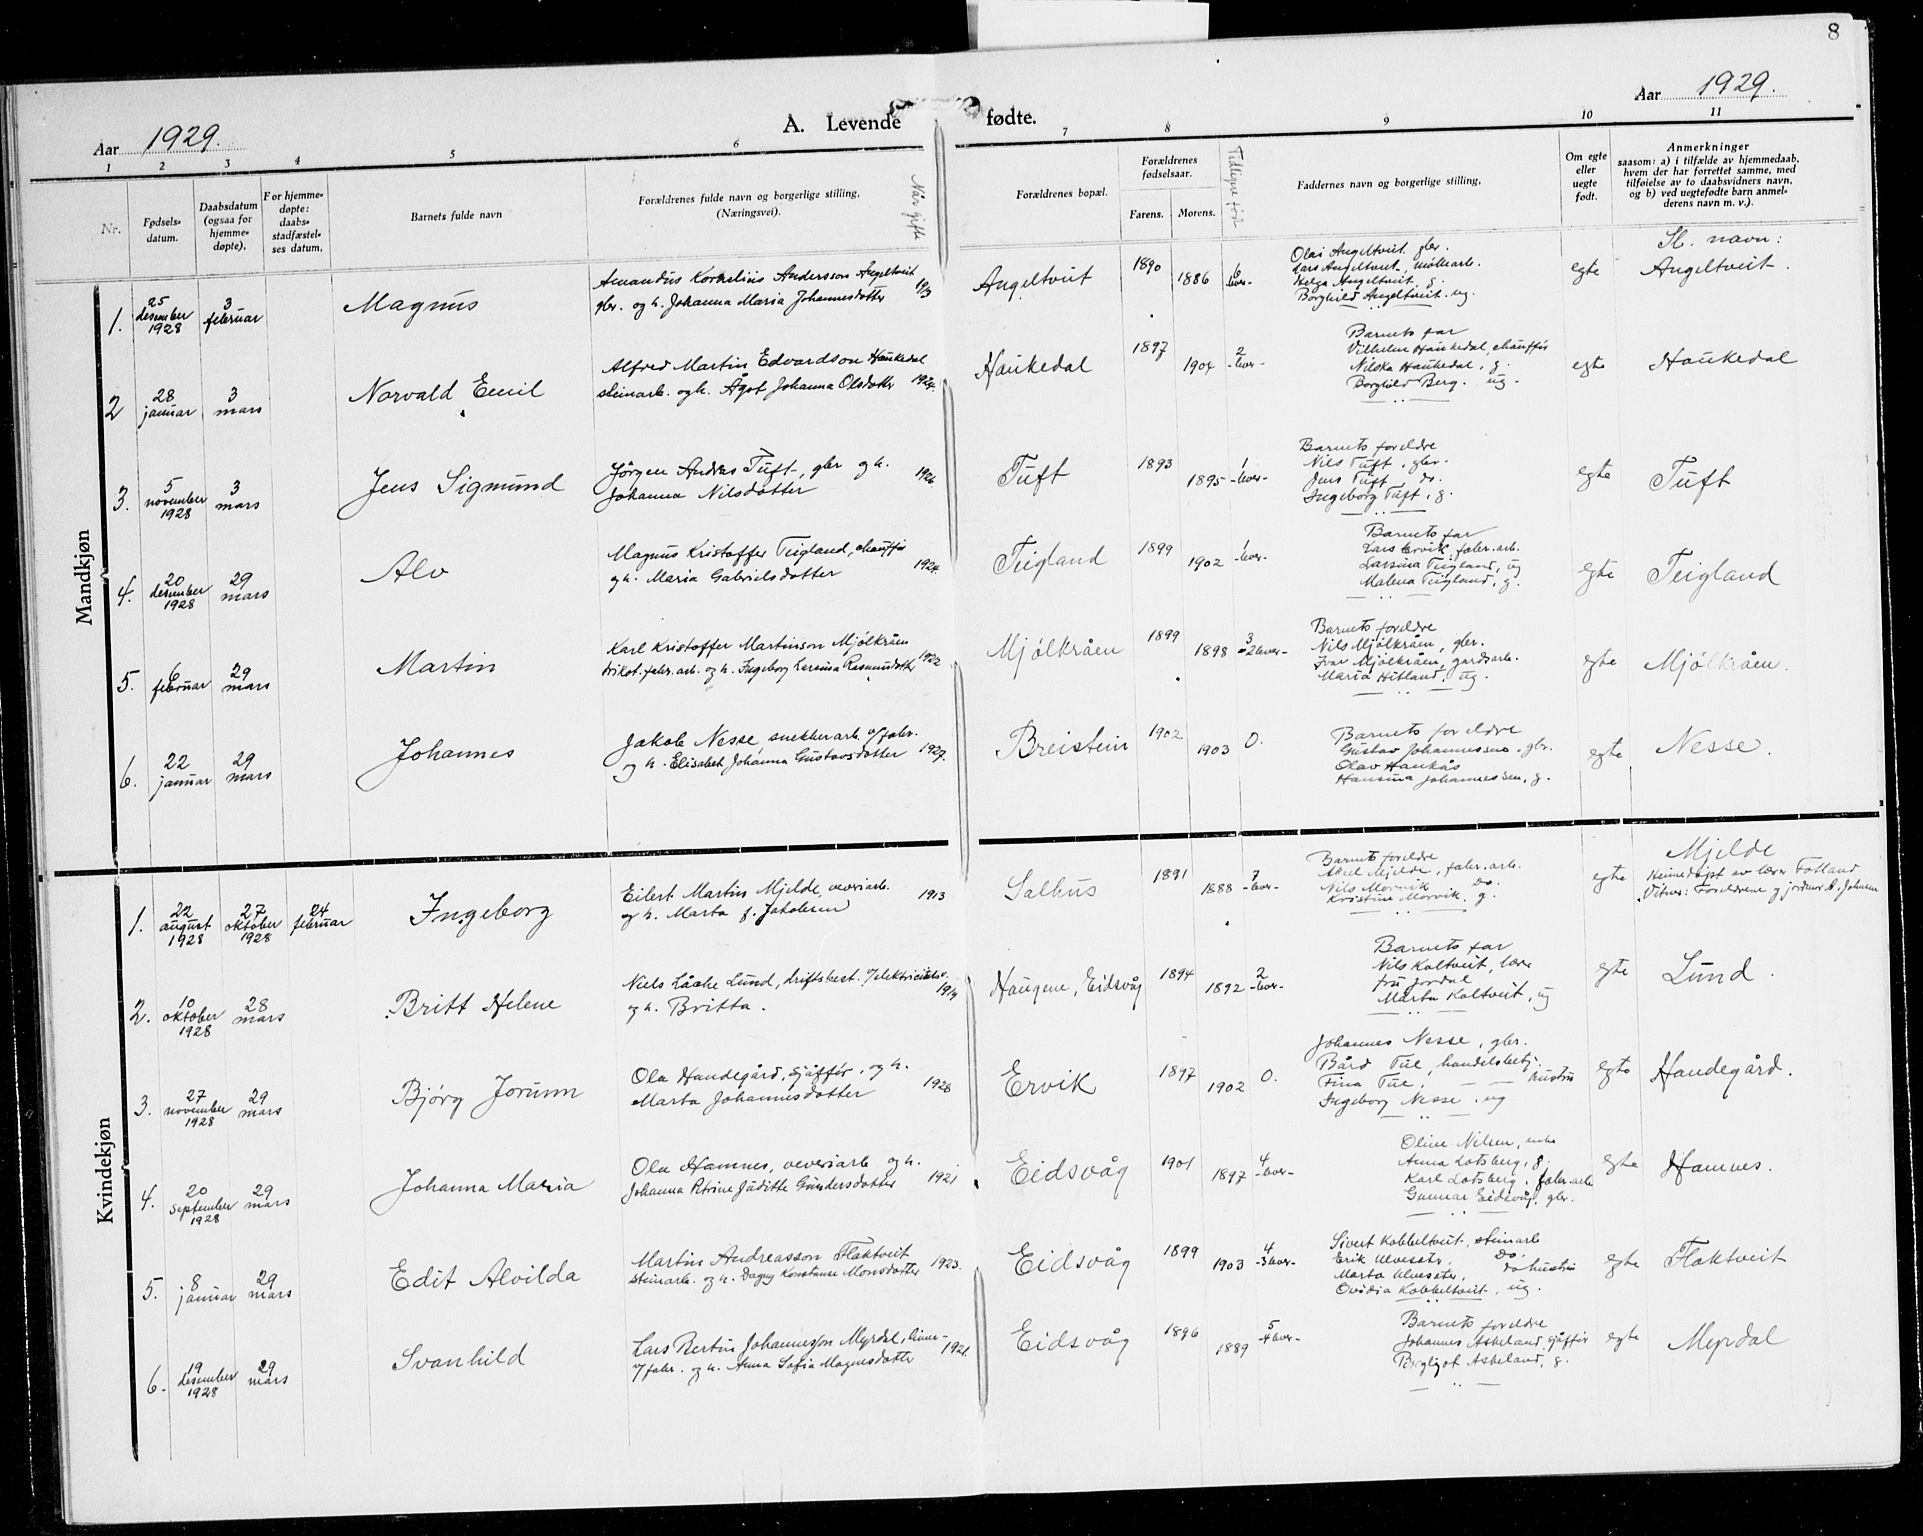 8
Aar 1929.
A. Levende fødte.
Aar 1929.
1 2 3 4 5 6 7 8 9 10 11
Nr.
Fødsels-
datum.
Daabsdatum
(ogsaa for
hjemme-
døpte).
For hjemme-
døpte:
daabs-
stadfæstel-
ses datum.
Barnets fulde navn
Forældrenes fulde navn og borgerlige stilling.
(Næringsvei).
Når gifte
Forældrenes bopæl.
Forældrenes
fødselsaar.
Farens. Morens.
Faddernes navn og borgerlige stilling.
Om egte
eller
uegte
født.
Anmerkninger
saasom: a) i tilfælde av hjemmedaab,
hvem der har forrettet samme, med
tilføielse av to daabsvidners navn,
og b) ved uegtefødte barn anmel-
derens navn m. v.).
Mandkjøn
Sl. navn:
1. 25 desember 1928 3 februar Magnus
Amandus Kornelius Andersson Angeltveit
gbr. og h. Johanna Maria Johannesdotter 1913
Angeltveit 1890 1886 6 lever
Olai Angeltveit gbr.
Lars Angeltveit, møllearb.
Helga Angeltveit g.
Borghild Angeltveit. ug.
egte Angeltveit.
2 28 januar 3 mars Norvald Emil
Alfred Martin Edvardson Haukedal
steinarb. og h. Ågot Johanna Olsdotter 1924.
Haukedal 1897 1904 2 lever
Barnets far
Vilhelm Haukedal, chauffør
Nilska Haukedal, g.
Borghild Berg. ug.
egte Haukedal
3. 5 november 1928 3 mars Jens Sigmund
Jørgen Andreas Tuft, gbr og h.
Johanna Nilsdotter 1926
Tuft 1893 1895 1 lever
Barnets foreldre
Nils Tuft, gbr.
Jens Tuft, do.
Ingeborg Tuft, g.
egte Tuft
4. 20 desember 1928 29 mars Alv
Magnus Kristoffer Teigland, chauffør
og h. Maria Gabrielsdotter 1924.
Teigland 1899 1902 1 lever
Barnets far
Lars Ervik, fabr. arb.
Larsina Teigland, ug
Malena Teigland, g.
egte Teigland
5. 6 februar 29 mars Martin
Karl Kristoffer Martinson Mjølkråen
trikot. fabr. arb. og h. Ingeborg Larsina Rasmusdotter 1922
Mjølkråen 1899 1898 3 2 lever
Barnets foreldre
Nils Mjølkråen, gbr.
Ivar Mjølkråen, gardsarb.
Maria Hitland, ug.
egte Mjølkråen.
6. 22 januar 29 mars Johannes
Jakob Nesse snekkerarb. v/ fabr.
og h. Elisabet Johanna Gustavsdotter 1927.
Breistein 1902 1903 0.
Barnets foreldre
Gustav Johannessen, gbr.
Olav Haukås
Hansina Johannessen, g.
egte Nesse.
Kvindekjøn
1. 22 august 1928 27 oktober 1928 24 februar Ingeborg
Eilert Martin Mjelde, veveriarb.
og h. Marta f. Jakobsen 1913
Salhus 1891 1888 7 lever
Barnets foreldre
Aksel Mjelde, fabr. arb.
Nils Morvik do.
Kristine Morvik, g.
egte Mjelde
Heimedøpt av lærer Totland
Vitner: Foreldrene og jordmor A. Johnsen
2. 10 oktober 1928 28 mars Britt Helene
Niels Låche Lund, driftsbest. v/ elektricitetsv.
og h. Britta. 1919
Haugene, Eidsvåg 1894 1892 2 lever
Barnets far
Nils Koltveit, lærer
fru Jordal
Marta Koltveit, ug
egte Lund.
3. 27 november 1928 29 mars Bjørg Jorunn
Ola Handegård, sjåffør, og h.
Marta Johannesdotter 1928
Ervik 1897 1902 0.
Johannes Nesse, gbr.
Bård Tue, handelsbetj.
Fina Tue, hustru
Ingeborg Nesse, ug
egte Handegård.
4. 20 september 1928 29 mars Johanna Maria
Ola Hamnes, veveriarb. og h.
Johanna Petrine Juditte Gundersdotter 1921
Eidsvåg 1901 1897 4 lever
Oline Nilsen, enke
Anna Lotsberg, g.
Karl Lotsberg, fabr. arb
Gunnar Eidsvåg, gbr.
egte Hamnes.
5. 8 januar 29 mars Edit Alvilda
Martin Andreasson Flaktveit
steinarb. og h. Dagny Konstanse Monsdotter 1923.
Eidsvåg 1899 1903 4 3 lever
Sivert Kobbeltveit, steinarb
Erik Ulvesæter, do.
Marta Ulvesæter, do hustru
Ovidia Kobbeltveit, ug.
egte Flaktveit
6. 19 desember 1928 29 mars Svanhild
Lars Bertin Johannesson Myrdal,
v/ fabr. og h. Anna Sofia Magnusdotter 1921.
Eidsvåg 1896 1889 5 4 lever
Barnets foreldre
Johannes Askeland, sjåffør
Bergljot Askeland, g.
egte Myrdal